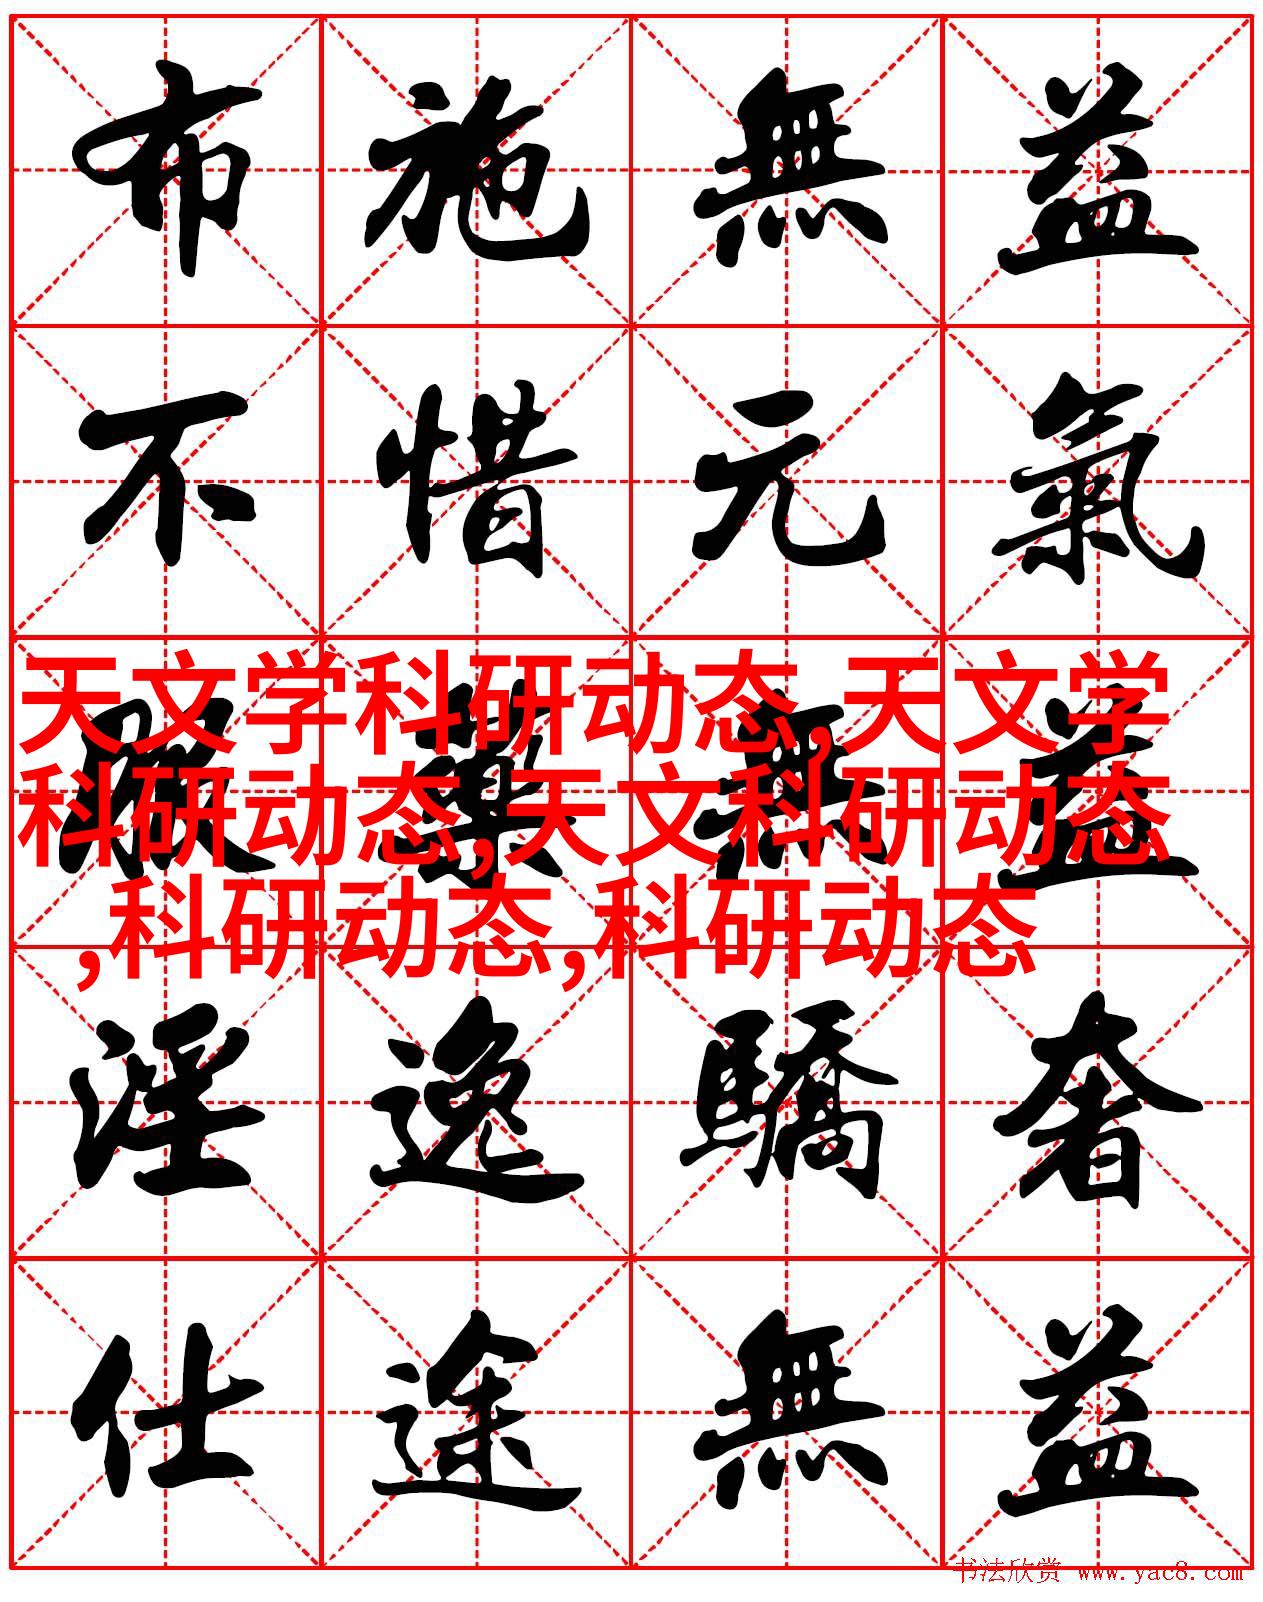 布施無益
不惜元氣
服藥無益
天文学科研动态,天文学
科研动态,天文科研动态
,科研动态,科研动态
淫逸驕奢
仕途無益
书法欣赏 www.yac8.com